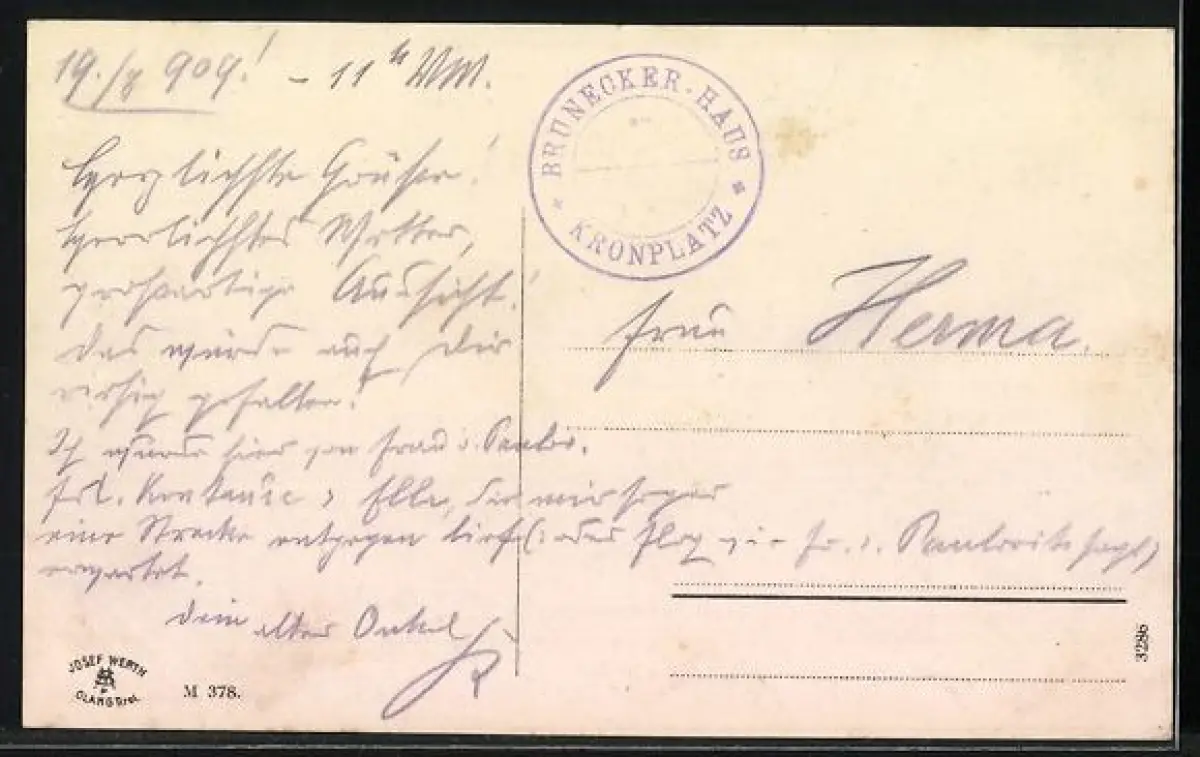 19./8 909! – 11h VM.
Herzlichste Grüße!
Herrlichstes Wetter,
großartige Aussicht!
das würde auch Dir
riesig gefallen!
Ich wurde hier von Frau v.
Frl. Ella, die mir sogar
eine Strecke entgegen lief (: oder flog wie Fr. v. sagt)
erwartet.
Dein alter Onkel
BRUNECKER-HAUS
KRONPLATZ
Frau Herma.
JOSEF WERTH
M 378.
3286